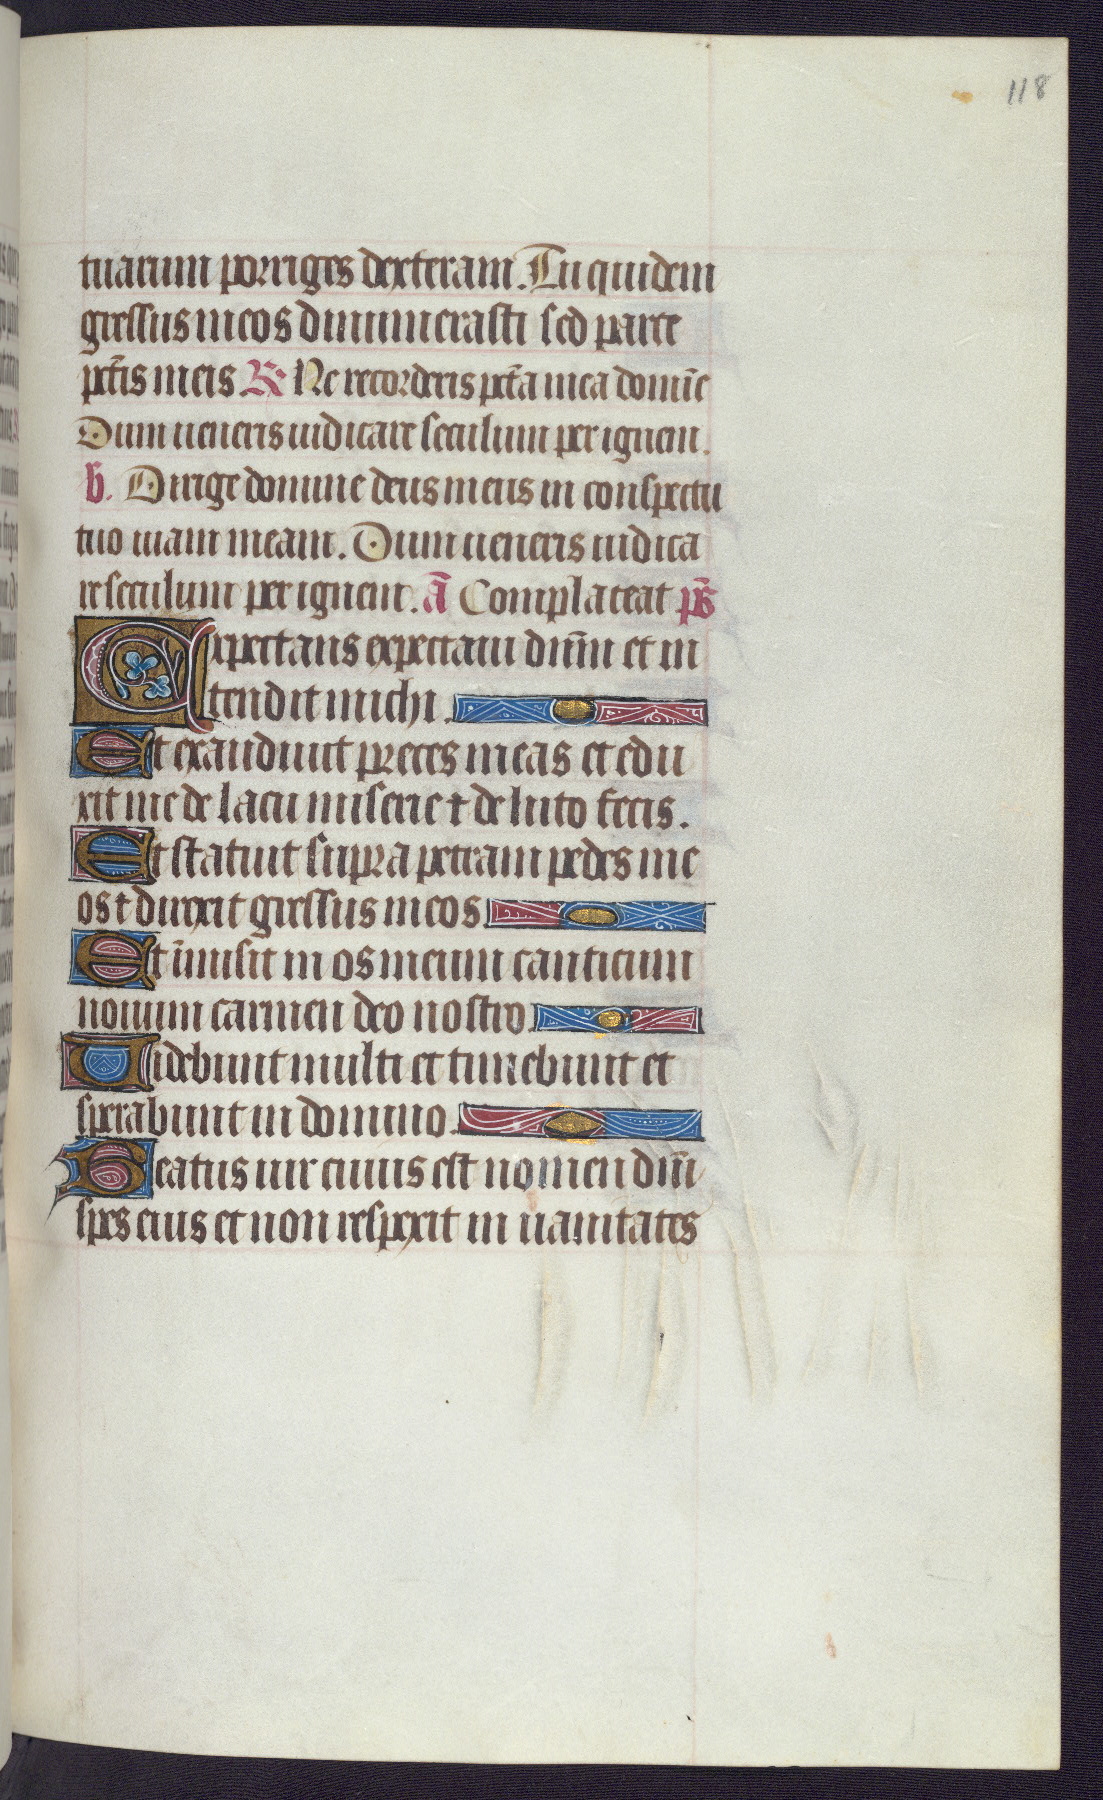 118
tuarum porriges dexteram. Tu quidem
gressus meos dinumerasti sed parce
pctis meis R Ne recorderis pcta mea domine
Dum ueneris iudicare seculum per ignem.
v. Dirige domine deus meus in conspectu
tuo uiam meam. Dum ueneris iudica
re seculum per ignem. a Complaceat ps
Expectans expectaui dnm et in
tendit michi.
Et exaudiuit preces meas et edu
xit me de lacu miserie et de luto fecis.
Et statuit supra petram pedes me
os et direxit gressus meos
Et inmisit in os meum canticum
nouum carmen deo nostro
Uidebunt multi et timebunt et
sperabunt in domino.
Beatus uir cuius est nomen dni
spes eius et non respexit in uanitates